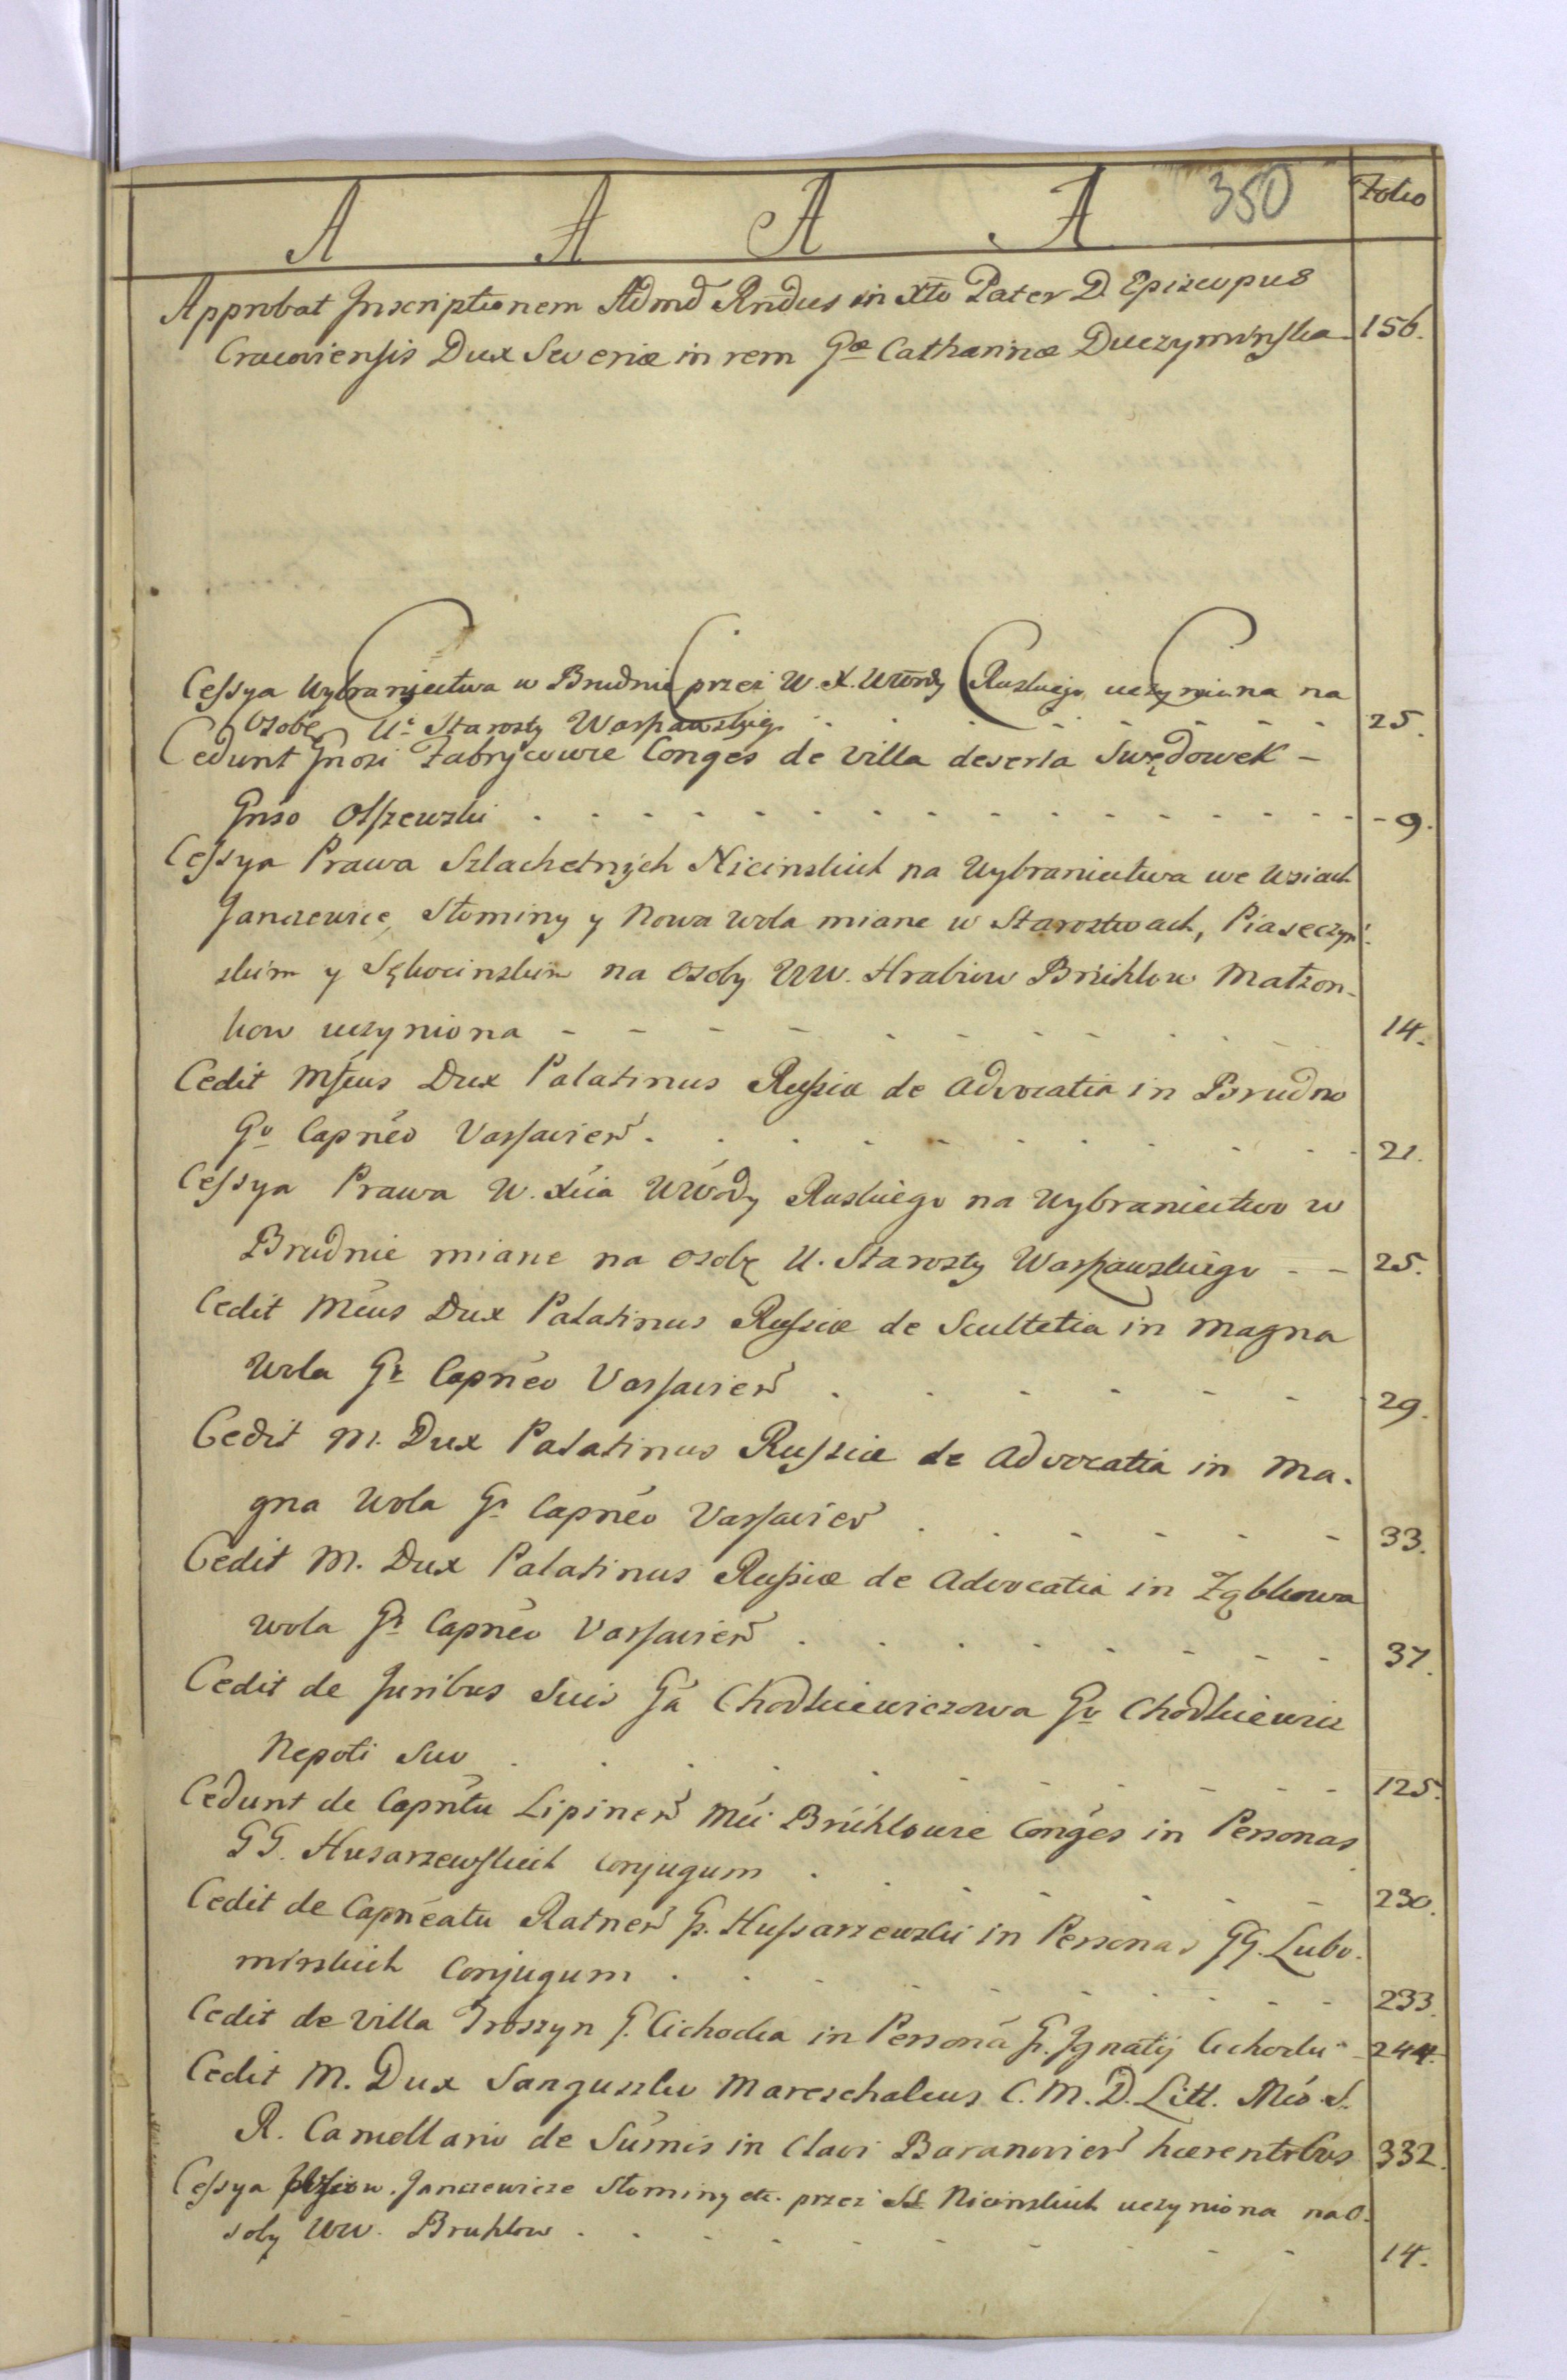 A A A A 350 Folio
Approbat Inscriptionem Admd Rndus in Xto Pater D. Episcopus
Cracoviensis Dux Severiæ in rem Gæ Catharinæ Duczyminska 156.
C C C C
Cessya Wybraniectwa w Brudnie przez W. X. Wwdy Ruskiego uczyniona na
Osobę U. Starosty Warszawskiego 25.
Cedunt Gnosi Zabrycowie Conges de Villa deserta Swędowek
Gnso Olszewski 9.
Cessya Prawa Szlachetnych Nicinskich na Wybraniectwa we Wsiach
Janczewice, Słominy y Nowa Wola miane w Starostwach, Piaseczyń-
skim y Sękocinskim na Osoby WW. Hrabiow Brühlow Małzon-
kow uczyniona 14.
Cedit Mfcus Dux Palatinus Russiæ de Advocatia in Brudno
Go Capneo Varsavien. 21.
Cessya Prawa W. Xcia WWody Ruskiego na Wybraniectwo w
Brudnie miane na Osobę U. Starosty Warszawskiego 25.
Cedit Mcus Dux Palatinus Russiæ de Scultetia in Magna
Wola Go Capneo Varsavien 29.
Cedit M. Dux Palatinus Russiæ de Advocatia in Ma-
gna Wola Go Capneo Varsavien 33.
Cedit M. Dux Palatinus Russiæ de Advocatia in Ząbkowa
Wola Go Capneo Varsavien 37.
Cedit de Juribus Suis Ga Chodkiewiczowa Go Chodkiewicz
Nepoti Suo 125.
Cedunt de Capntu Lipinen Mci Brühlowie Conges in Personas
GG. Husarzewskich Conjugum 230.
Cedit de Capneatu Ratnen G. Hussarzewski in Personas GG. Lubo-
mirskich Conjugum 233.
Cedit de Villa Troszyn G. Cichocka in Persona G. Ignatij Cichocki 244.
Cedit M. Dux Sanguszko Mareschalcus C. M. D. Litt. Mco S.
R. Camellario de Sumis in Clavi Baranovien hærentibus 332.
Cessya Wsiow. Janczewicze Słominy etc. przez SS Nicinskich uczyniona na O-
soby WW. Bruhlow 14.